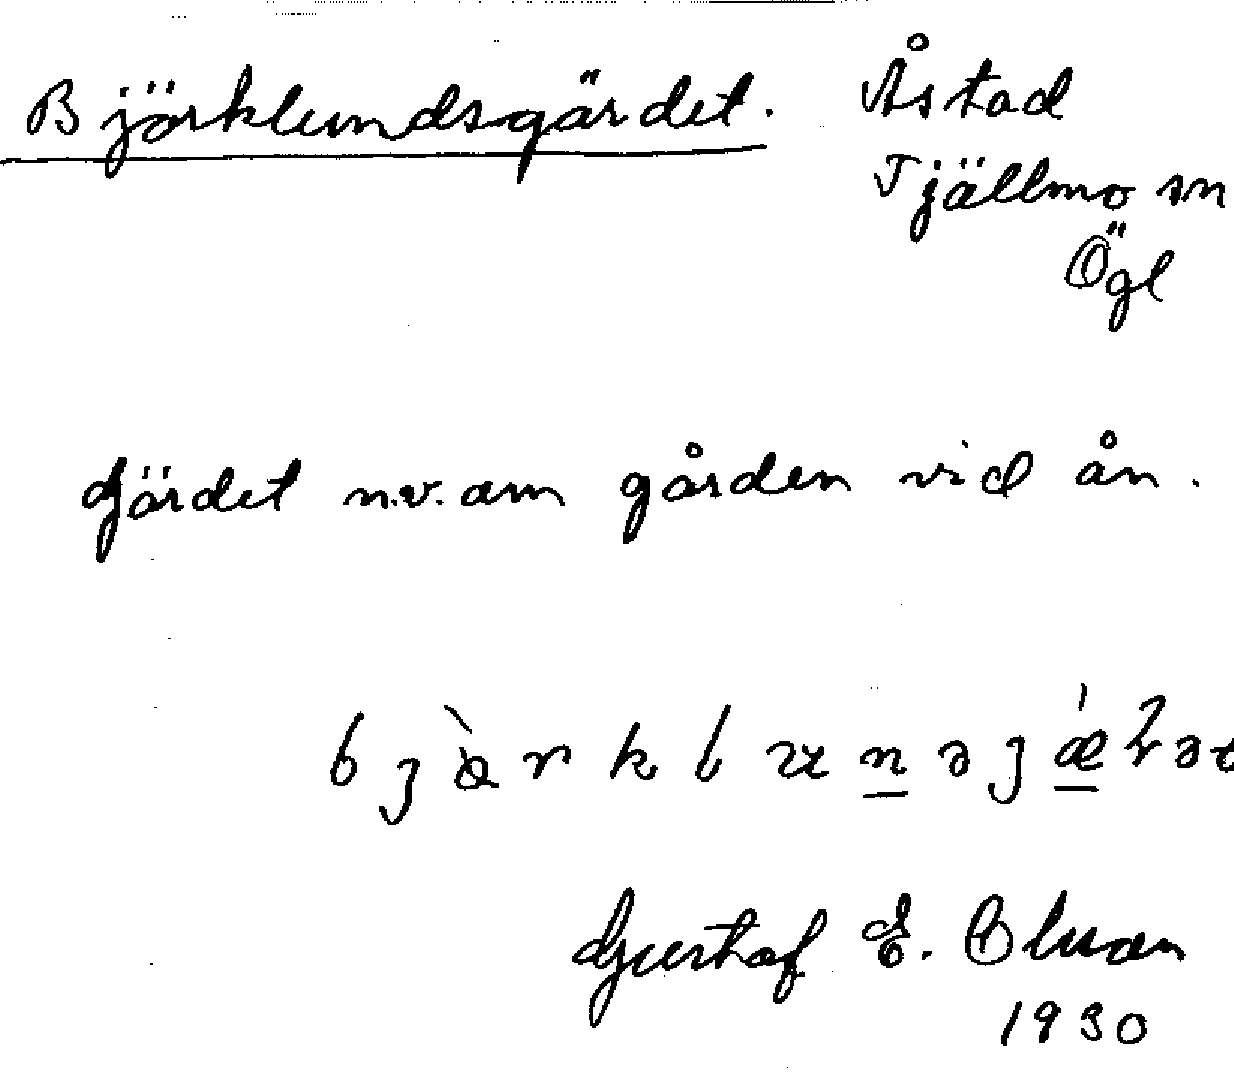 Björklundsgärdet. Åstad
Tjällmo sn
Ögl
Gärdet n.v. om gården vid ån.
Gustaf E. Olson
1930